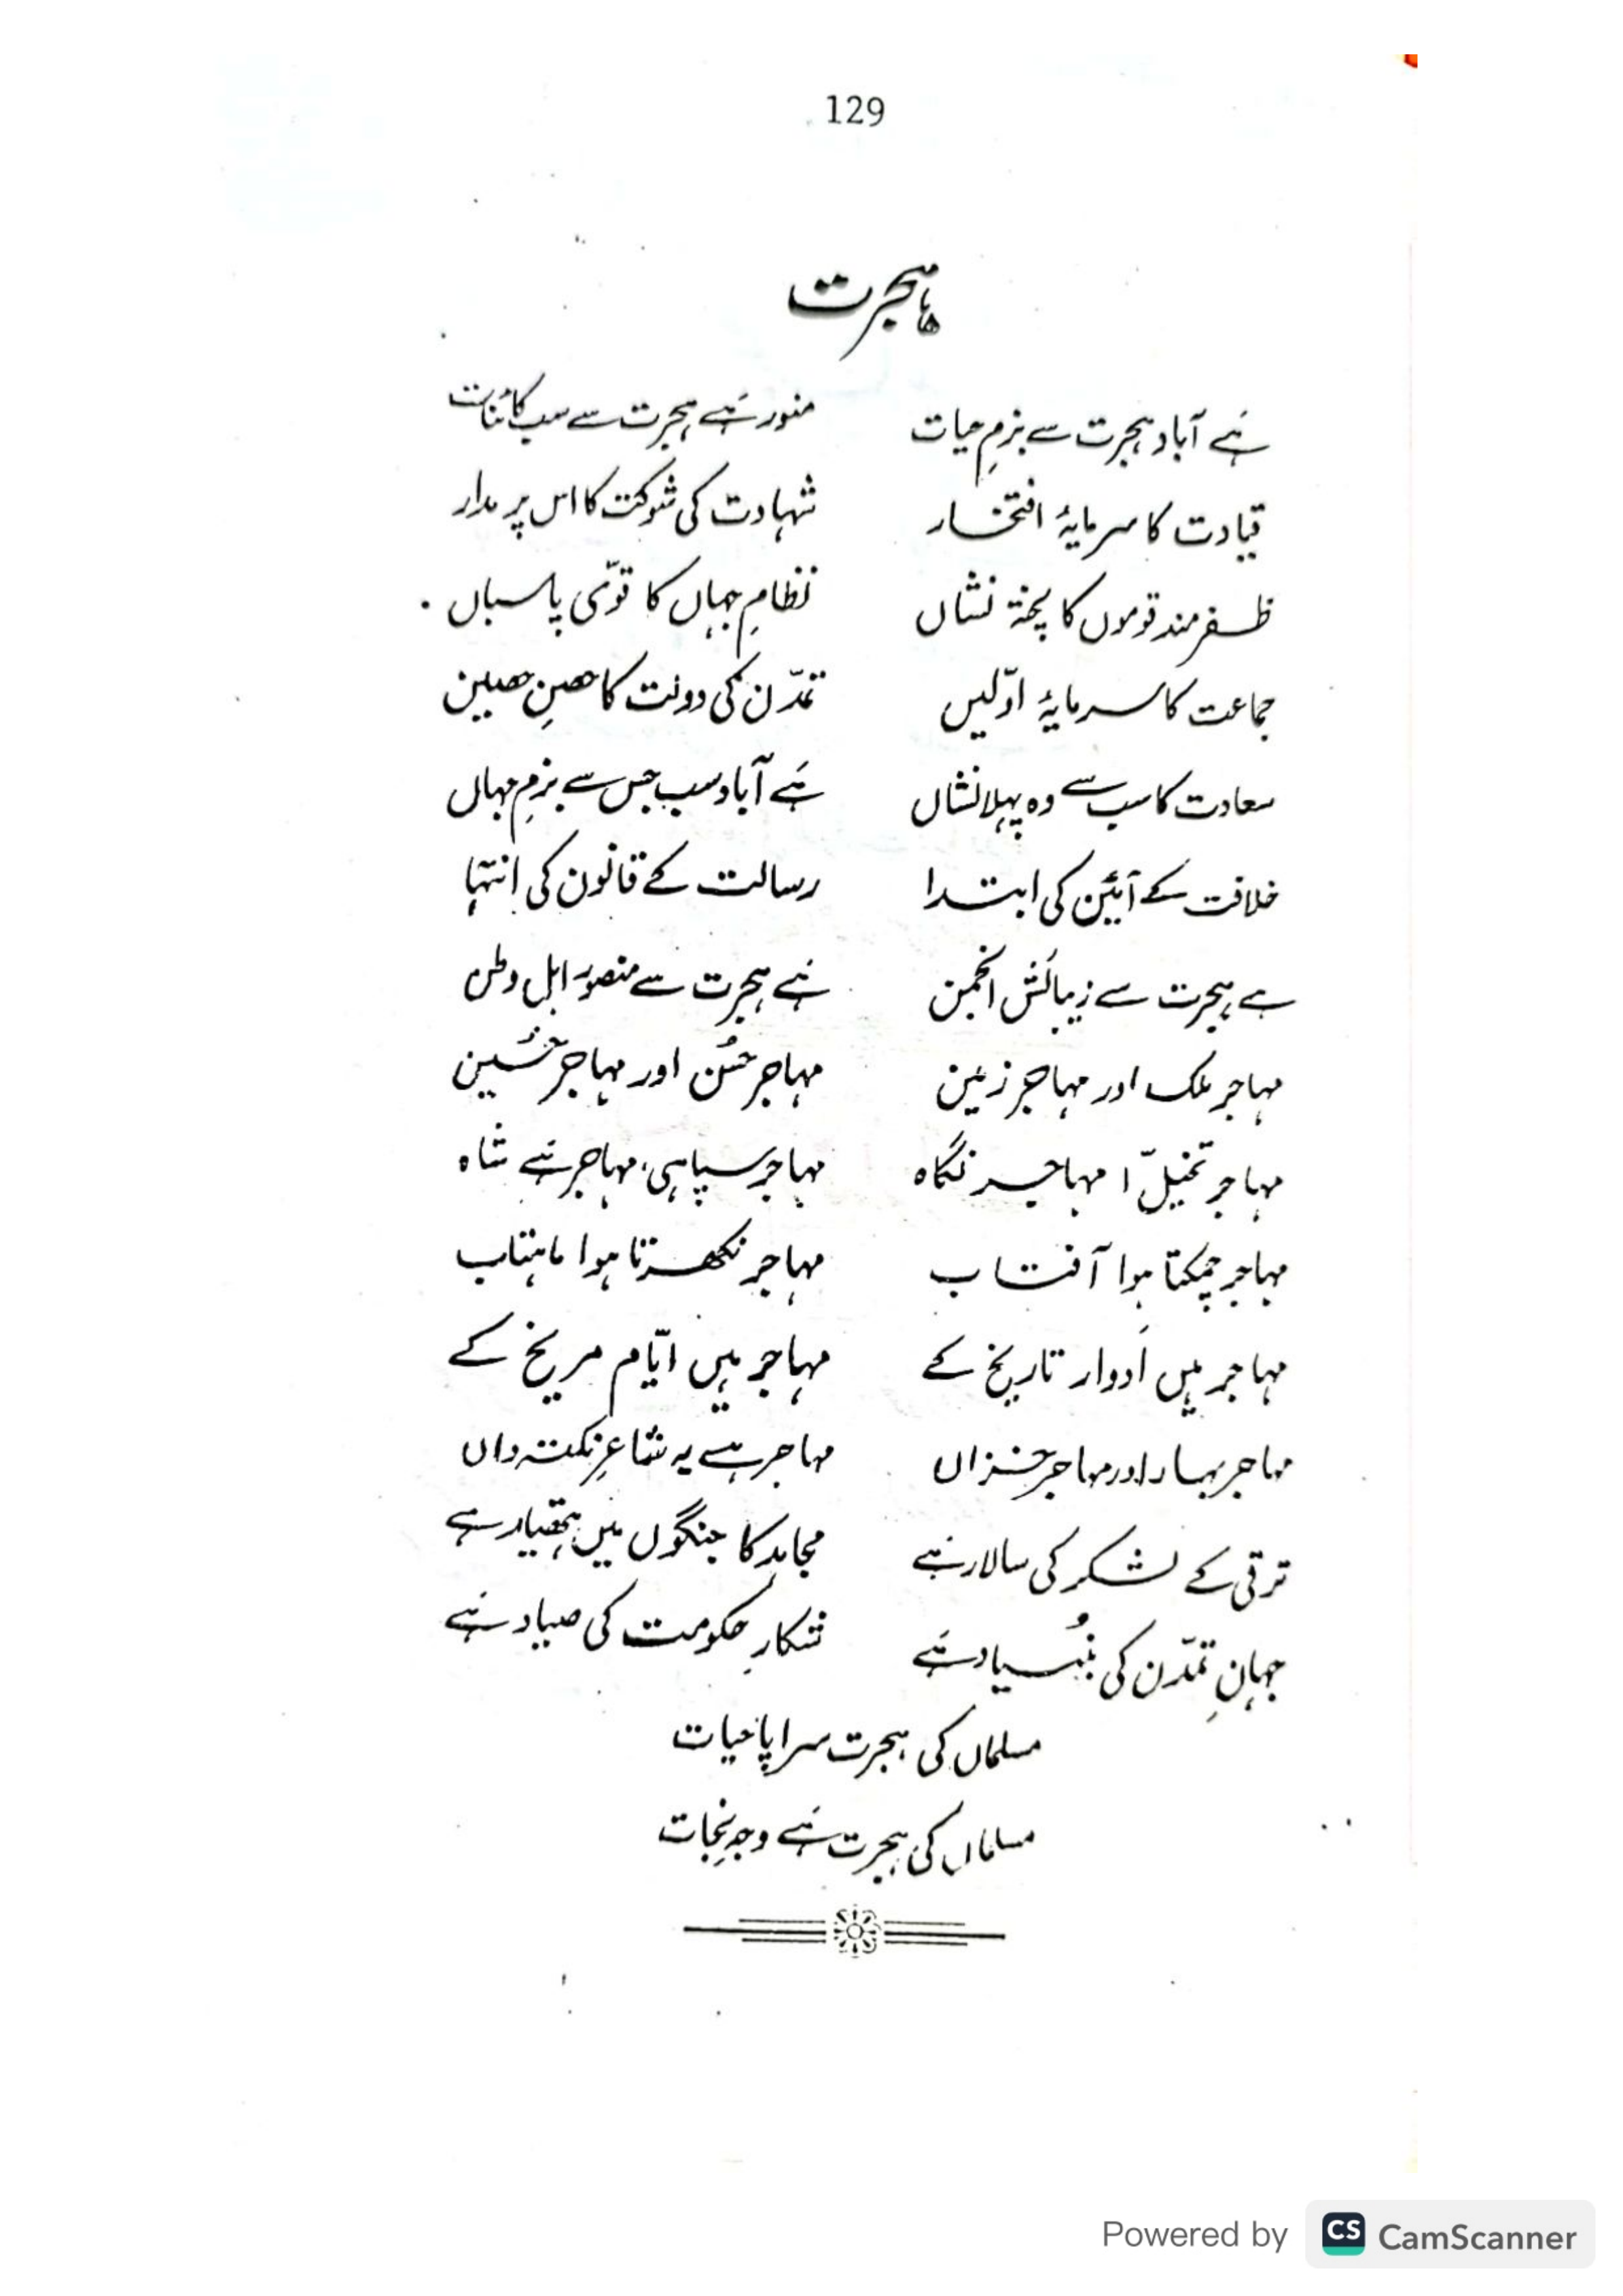 129
ہجرت
ہَے آباد ہجرت سے بزمِ حیات منور ہَے ہجرت سے سب کائنات
قیادت کا سرمایۂ افتخار شہادت کی شوکت کا اس پر مدار
ظفر مند قوموں کا پختہ نشاں نظامِ جہاں کا قوّی پاسباں
جماعت کا سرمایۂ اوّلیں تمدّن کی دولت کا حصنِ حصین
سعادت کا سب سے وہ پہلا نشاں ہَے آباد سب جس سے بزمِ جہاں
خلافت کے آئین کی ابتدا رسالت کے قانون کی انتہا
ہے ہجرت سے زیبائش انجمن ہَے ہجرت سے منصور اہل وطن
مہاجر ملک اور مہاجر زمین مہاجر حسُن اور مہاجر حُسین
مہاجر تخیّل، مہاجر نگاہ مہاجر سپاہی، مہاجر ہَے شاہ
مہاجر چمکتا ہوا آفتاب مہاجر نکھرتا ہوا ماہتاب
مہاجر ہیں اَدوار تاریخ کے مہاجر ہیں ایّام مریخ کے
مہاجر بہار اور مہاجر خزاں مہاجر ہے یہ شاعرِ نکتہ داں
ترقی کے لشکر کی سالار ہَے مجاہد کا جنگوں میں ہتھیار ہے
جہانِ تمدّن کی بُنیاد ہَے شکارِ حکومت کی صیاد ہَے
مسلماں کی ہجرت سراپا حیات
مسلماں کی ہجرت ہَے وجہِ نجات
Powered by CS CamScanner